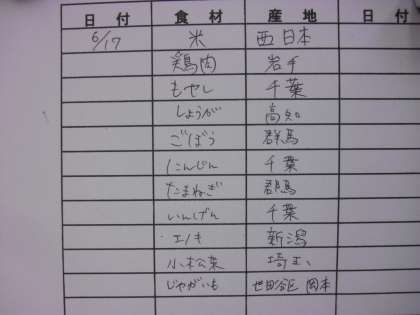 日付 食材 産地 日付
6/17 米 西日本
鶏肉 岩手
もやし 千葉
しょうが 高知
ごぼう 群馬
にんじん 千葉
たまねぎ 群馬
いんげん 千葉
エノキ 新潟
小松菜 埼玉
じゃがいも 世田谷区 岡本